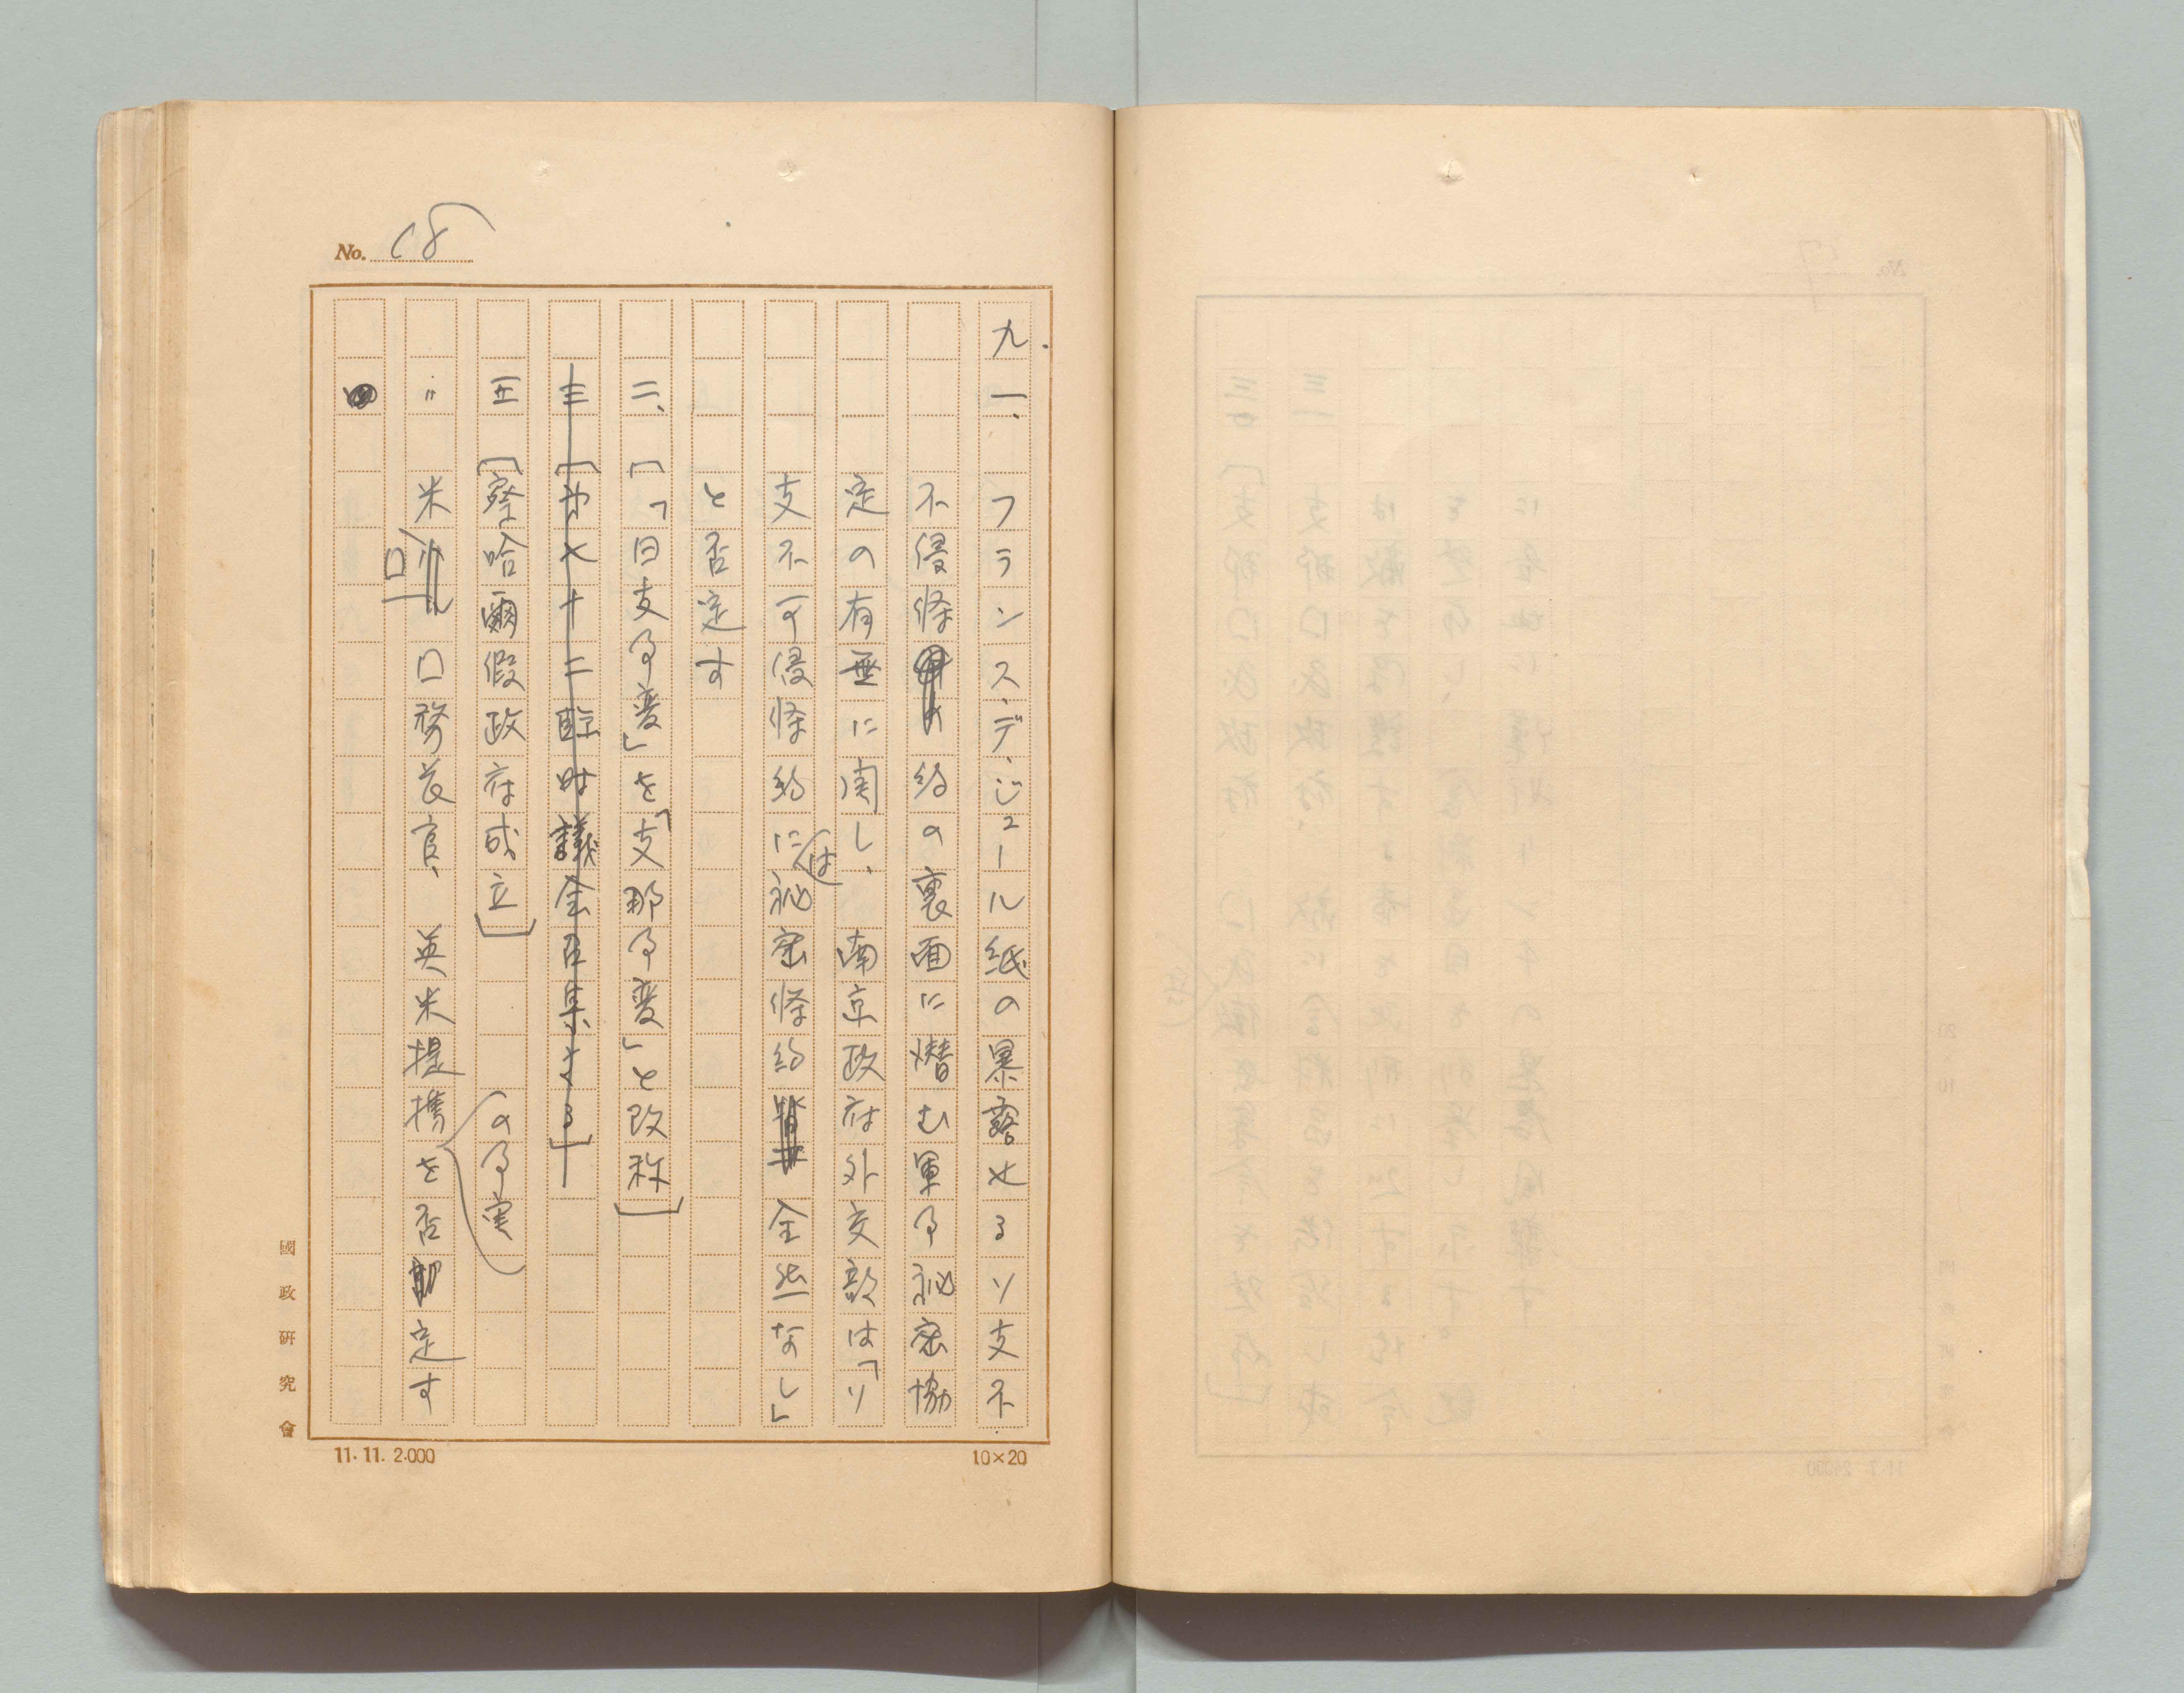 No. 18
九. 一、フランス、デ、ジュール紙の暴露せるソ支不
不侵條約の裏面に潜む軍事秘密協
定の有無に関し、南京政府外交部は「ソ
支不可侵條約には秘密條約全然なし」
と否定す
二、[「日支事変」を「支那事変」と改称]
三 [第七十二臨時議会召集さる]
五 [察哈爾假政府成立]
〃 米口口務長官、英米提携の事実を否定す
國政研究會
11.11. 2.000
10×20